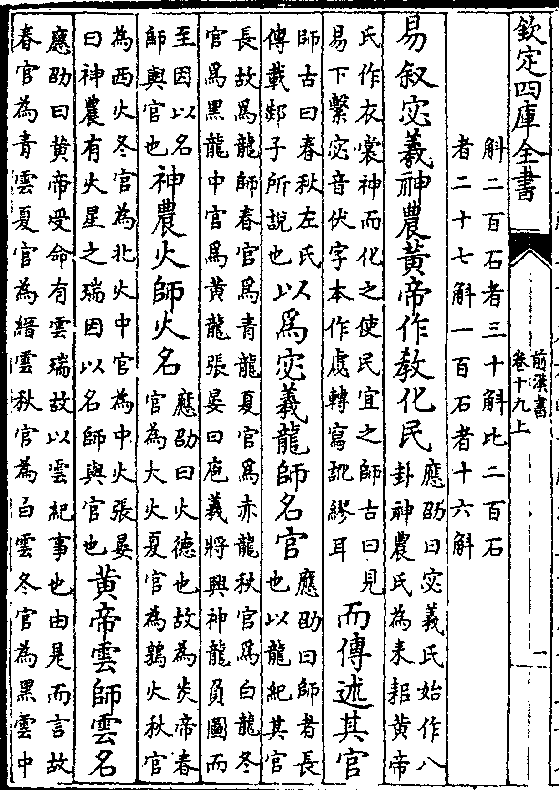 欽定四庫全書
前漢書
卷十九上
一
斛二百石者三十斛比二百石
者二十七斛一百石者十六斛
易叙宓羲神農黄帝作教化民
應劭曰宓羲氏始作八
卦神農氏為耒耜黄帝
氏作衣裳神而化之使民宜之師古曰見
易下繫宓音伏字本作虙轉寫訛繆耳
而傳述其官
師古曰春秋左氏
傳載郯子所説也
以為宓羲龍師名官
應劭曰師者長
也以龍紀其官
長故為龍師春官為青龍夏官為赤龍秋官為白龍冬
官為黑龍中官為黄龍張晏曰庖羲將興神龍負圖而
至因以名
師與官也
神農火師火名
應劭曰火德也故為炎帝春
官為大火夏官為鶉火秋官
為西火冬官為北火中官為中火張晏
曰神農有火星之瑞因以名師與官也
黄帝雲師雲名
應劭曰黄帝受命有雲瑞故以雲紀事也由是而言故
春官為青雲夏官為縉雲秋官為白雲冬官為黑雲中